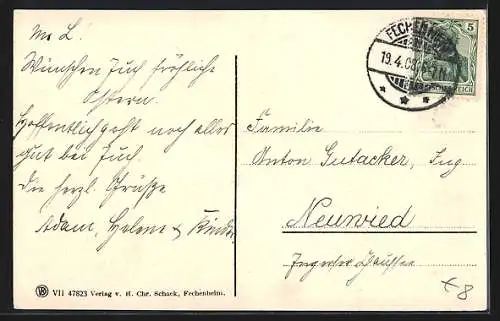 M. L.!
Wünschen Euch fröhliche
Ostern.
Hoffentlich geht noch alles
gut bei Euch.
Die herzl. Grüße
Adam, Helene & Kinder.
VII 47823 Verlag v. H. Chr. Schack, Fechenheim.
FECHENHEIM
19.4.08
5
REICH
Familie
Anton Gutacker, Ing
Neuwied
Chaussee